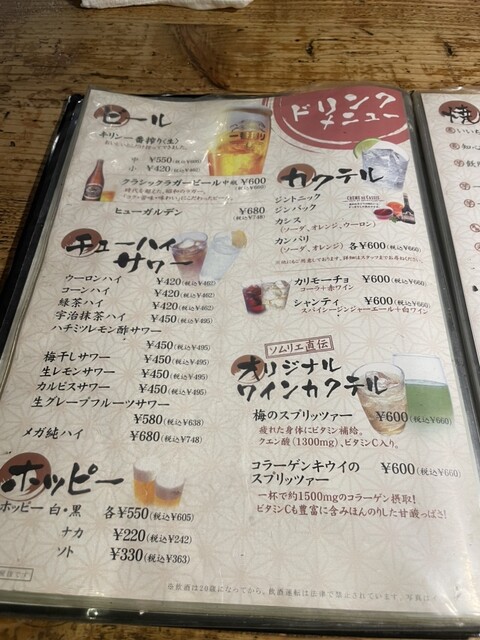 ドリンク
メニュー
ビール
キリン一番搾り〈生〉
中 ¥550(税込¥605)
小 ¥420(税込¥462)
クラシックラガービール中瓶 ¥600(税込¥660)
ヒューガルデン ¥680(税込¥748)
チューハイ
サワー
ウーロンハイ ¥420(税込¥462)
コーンハイ ¥420(税込¥462)
緑茶ハイ ¥420(税込¥462)
宇治抹茶ハイ ¥450(税込¥495)
ハチミツレモン酢サワー
¥450(税込¥495)
梅干しサワー ¥450(税込¥495)
生レモンサワー ¥450(税込¥495)
カルピスサワー ¥450(税込¥495)
生グレープフルーツサワー
¥580(税込¥638)
メガ純ハイ ¥680(税込¥748)
ホッピー
ホッピー 白・黒 各¥550(税込¥605)
ナカ ¥220(税込¥242)
ソト ¥330(税込¥363)
カクテル
ジントニック
ジンバック
カシス
(ソーダ、オレンジ、ウーロン)
カンパリ
(ソーダ、オレンジ) 各¥600(税込¥660)
カリモーチョ ¥600(税込¥660)
コーラ+赤ワイン
シャンティ ¥600(税込¥660)
スパイシージンジャーエール+白ワイン
ソムリエ直伝
オリジナル
ワインカクテル
梅のスプリッツァー ¥600(税込¥660)
疲れた身体にビタミン補給。
クエン酸(1300mg)、ビタミンC入り。
コラーゲンキウイの
スプリッツァー ¥600(税込¥660)
一杯で約1500mgのコラーゲン摂取!
ビタミンCも豊富に含みほんのりした甘酸っぱさ!
※飲酒は20歳になってから。飲酒運転は法律で禁止されています。写真は
焼